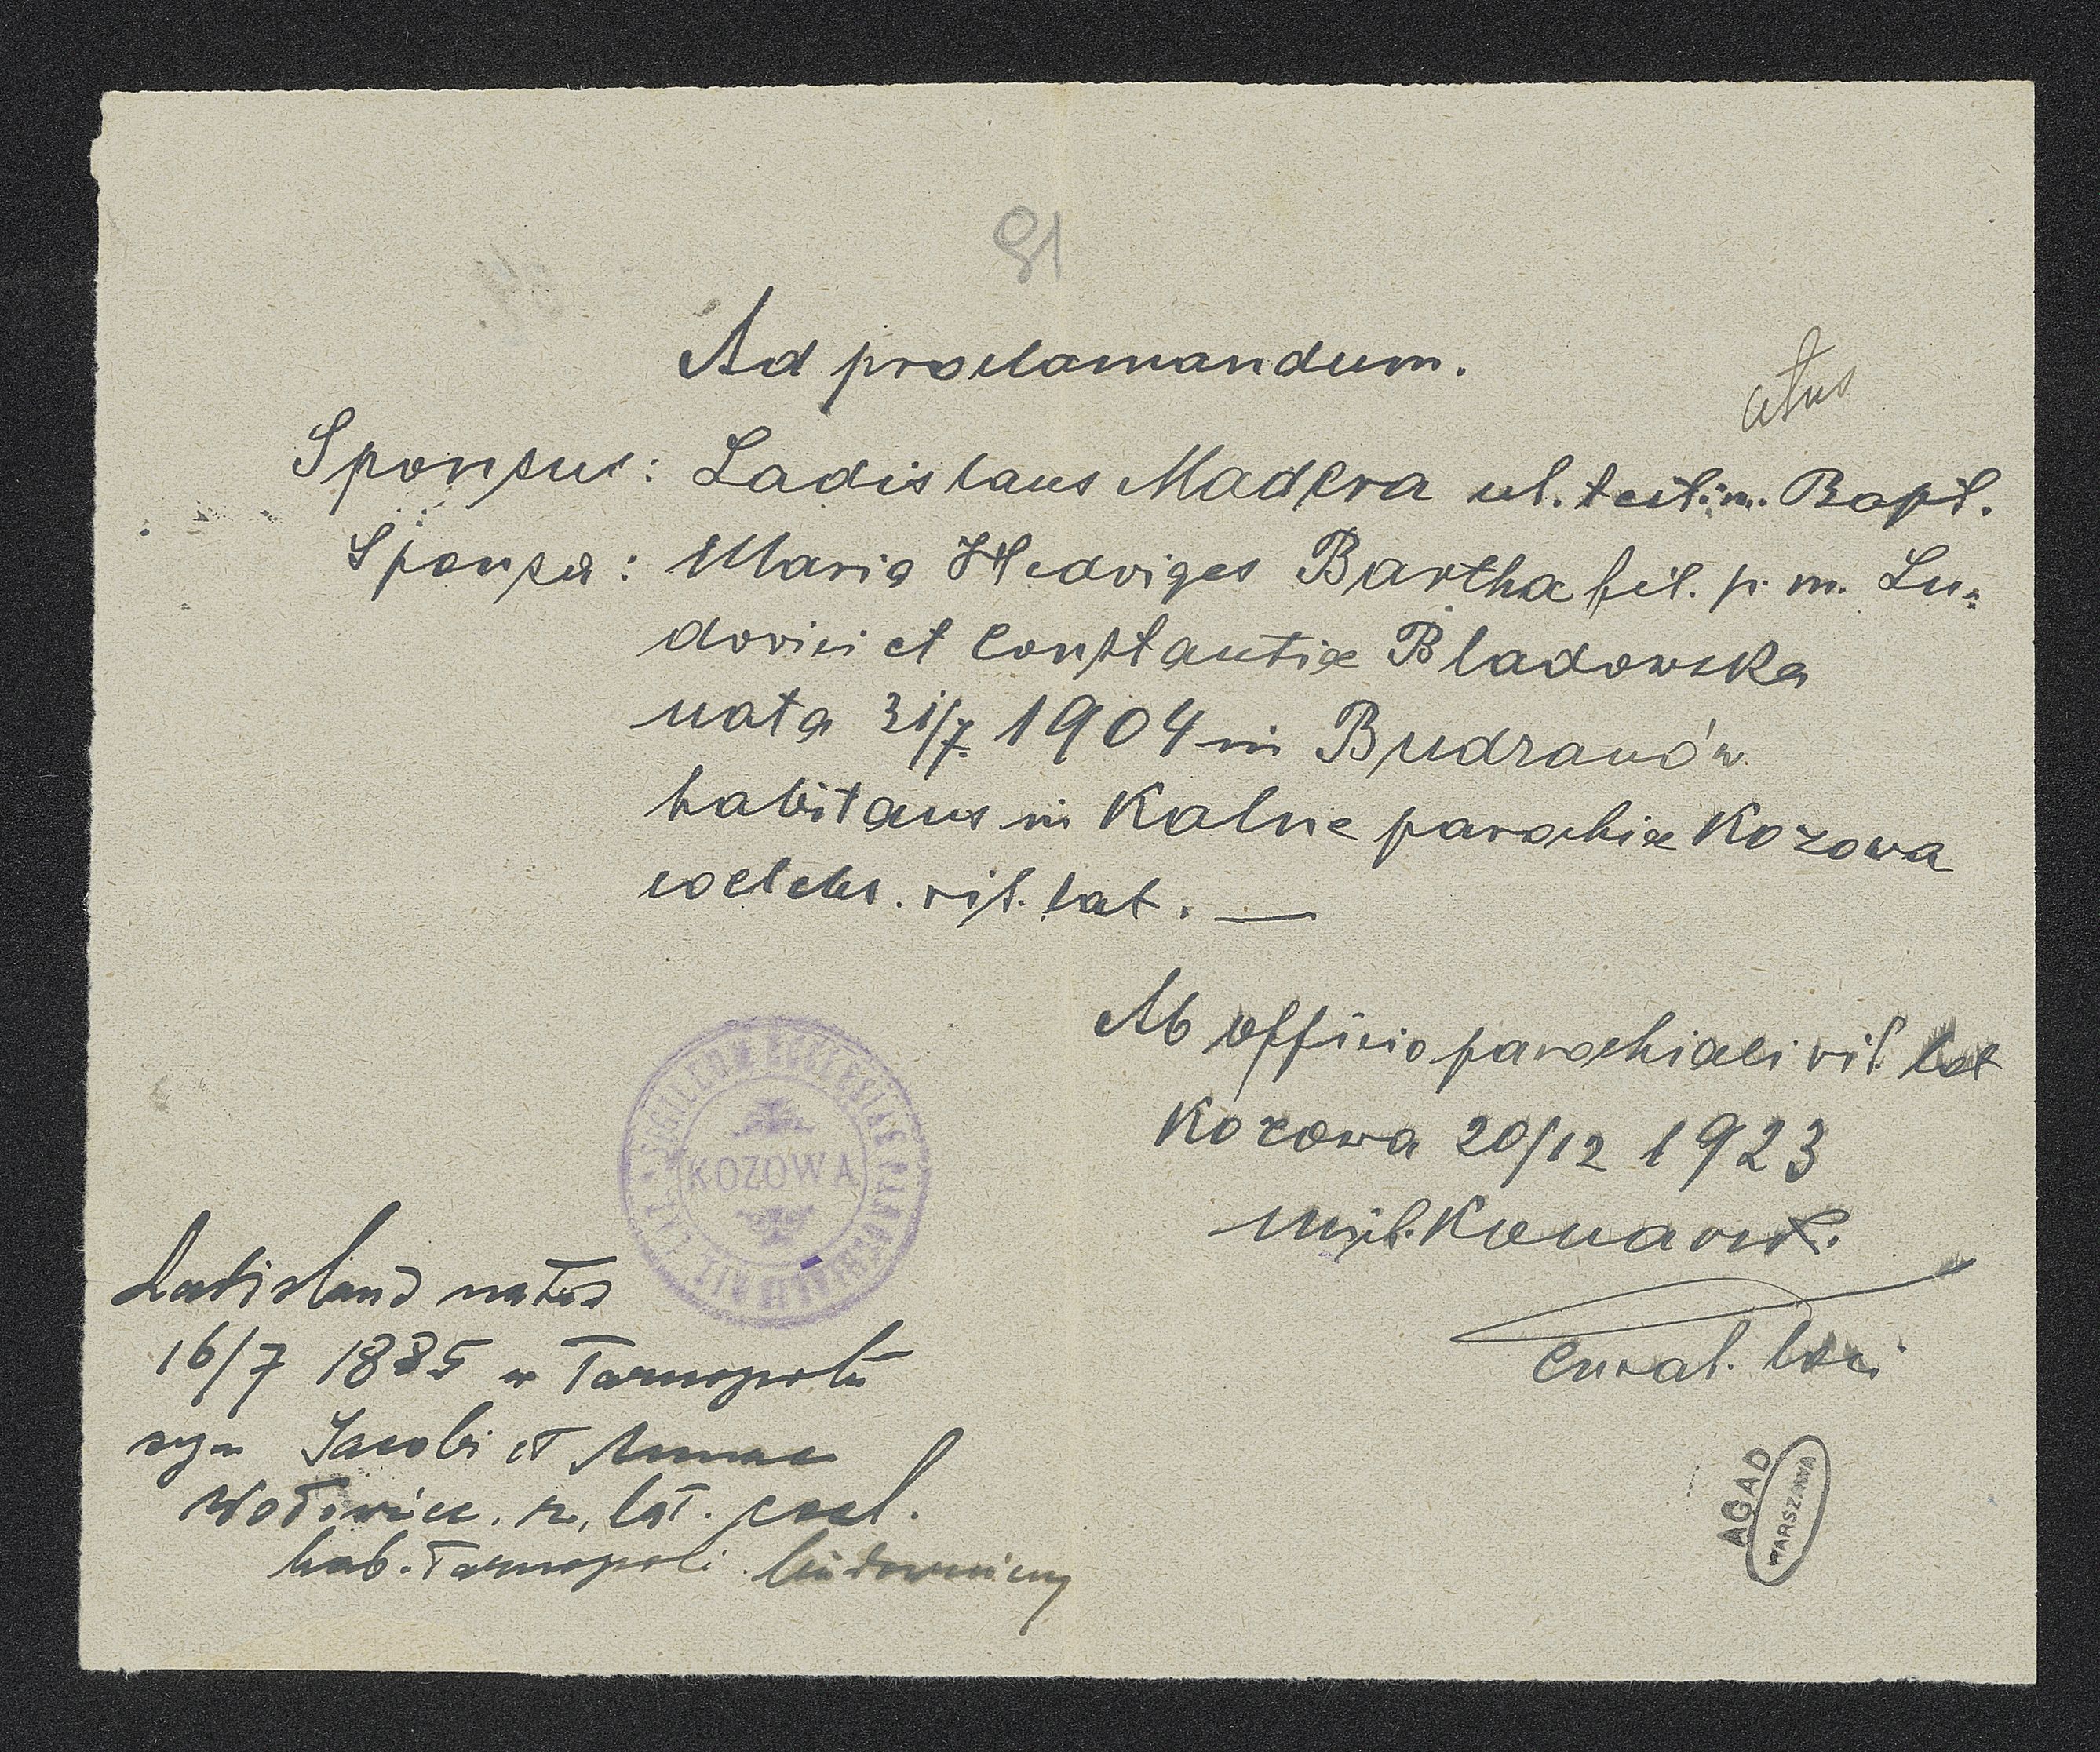 81
Ad proclamandum.
atus
Sponsus: Ladislaus Madera ut. testim. Bapt.
Sponsa: Maria Hedviges Bartha fil. p. m. Lu=
dovici et Constantiæ Bladowska
nata 31/7 1904 in Budzanów
habitans in Kalne parochiæ Kozowa
coelebs. rit. lat. —
Ab officio parochiali rit. lat
Kozowa 20/12 1923
Curat. loci
SIGILLUM ECCLESIAE PAROCHIALIS RIT. LAT.
KOZOWA
Ladislaus natus
16/7 1885 w Tarnopolu
syn Jacobi et Annae
r. lat. coel.
hab. Tarnopoli budowniczy
AGAD
WARSZAWA